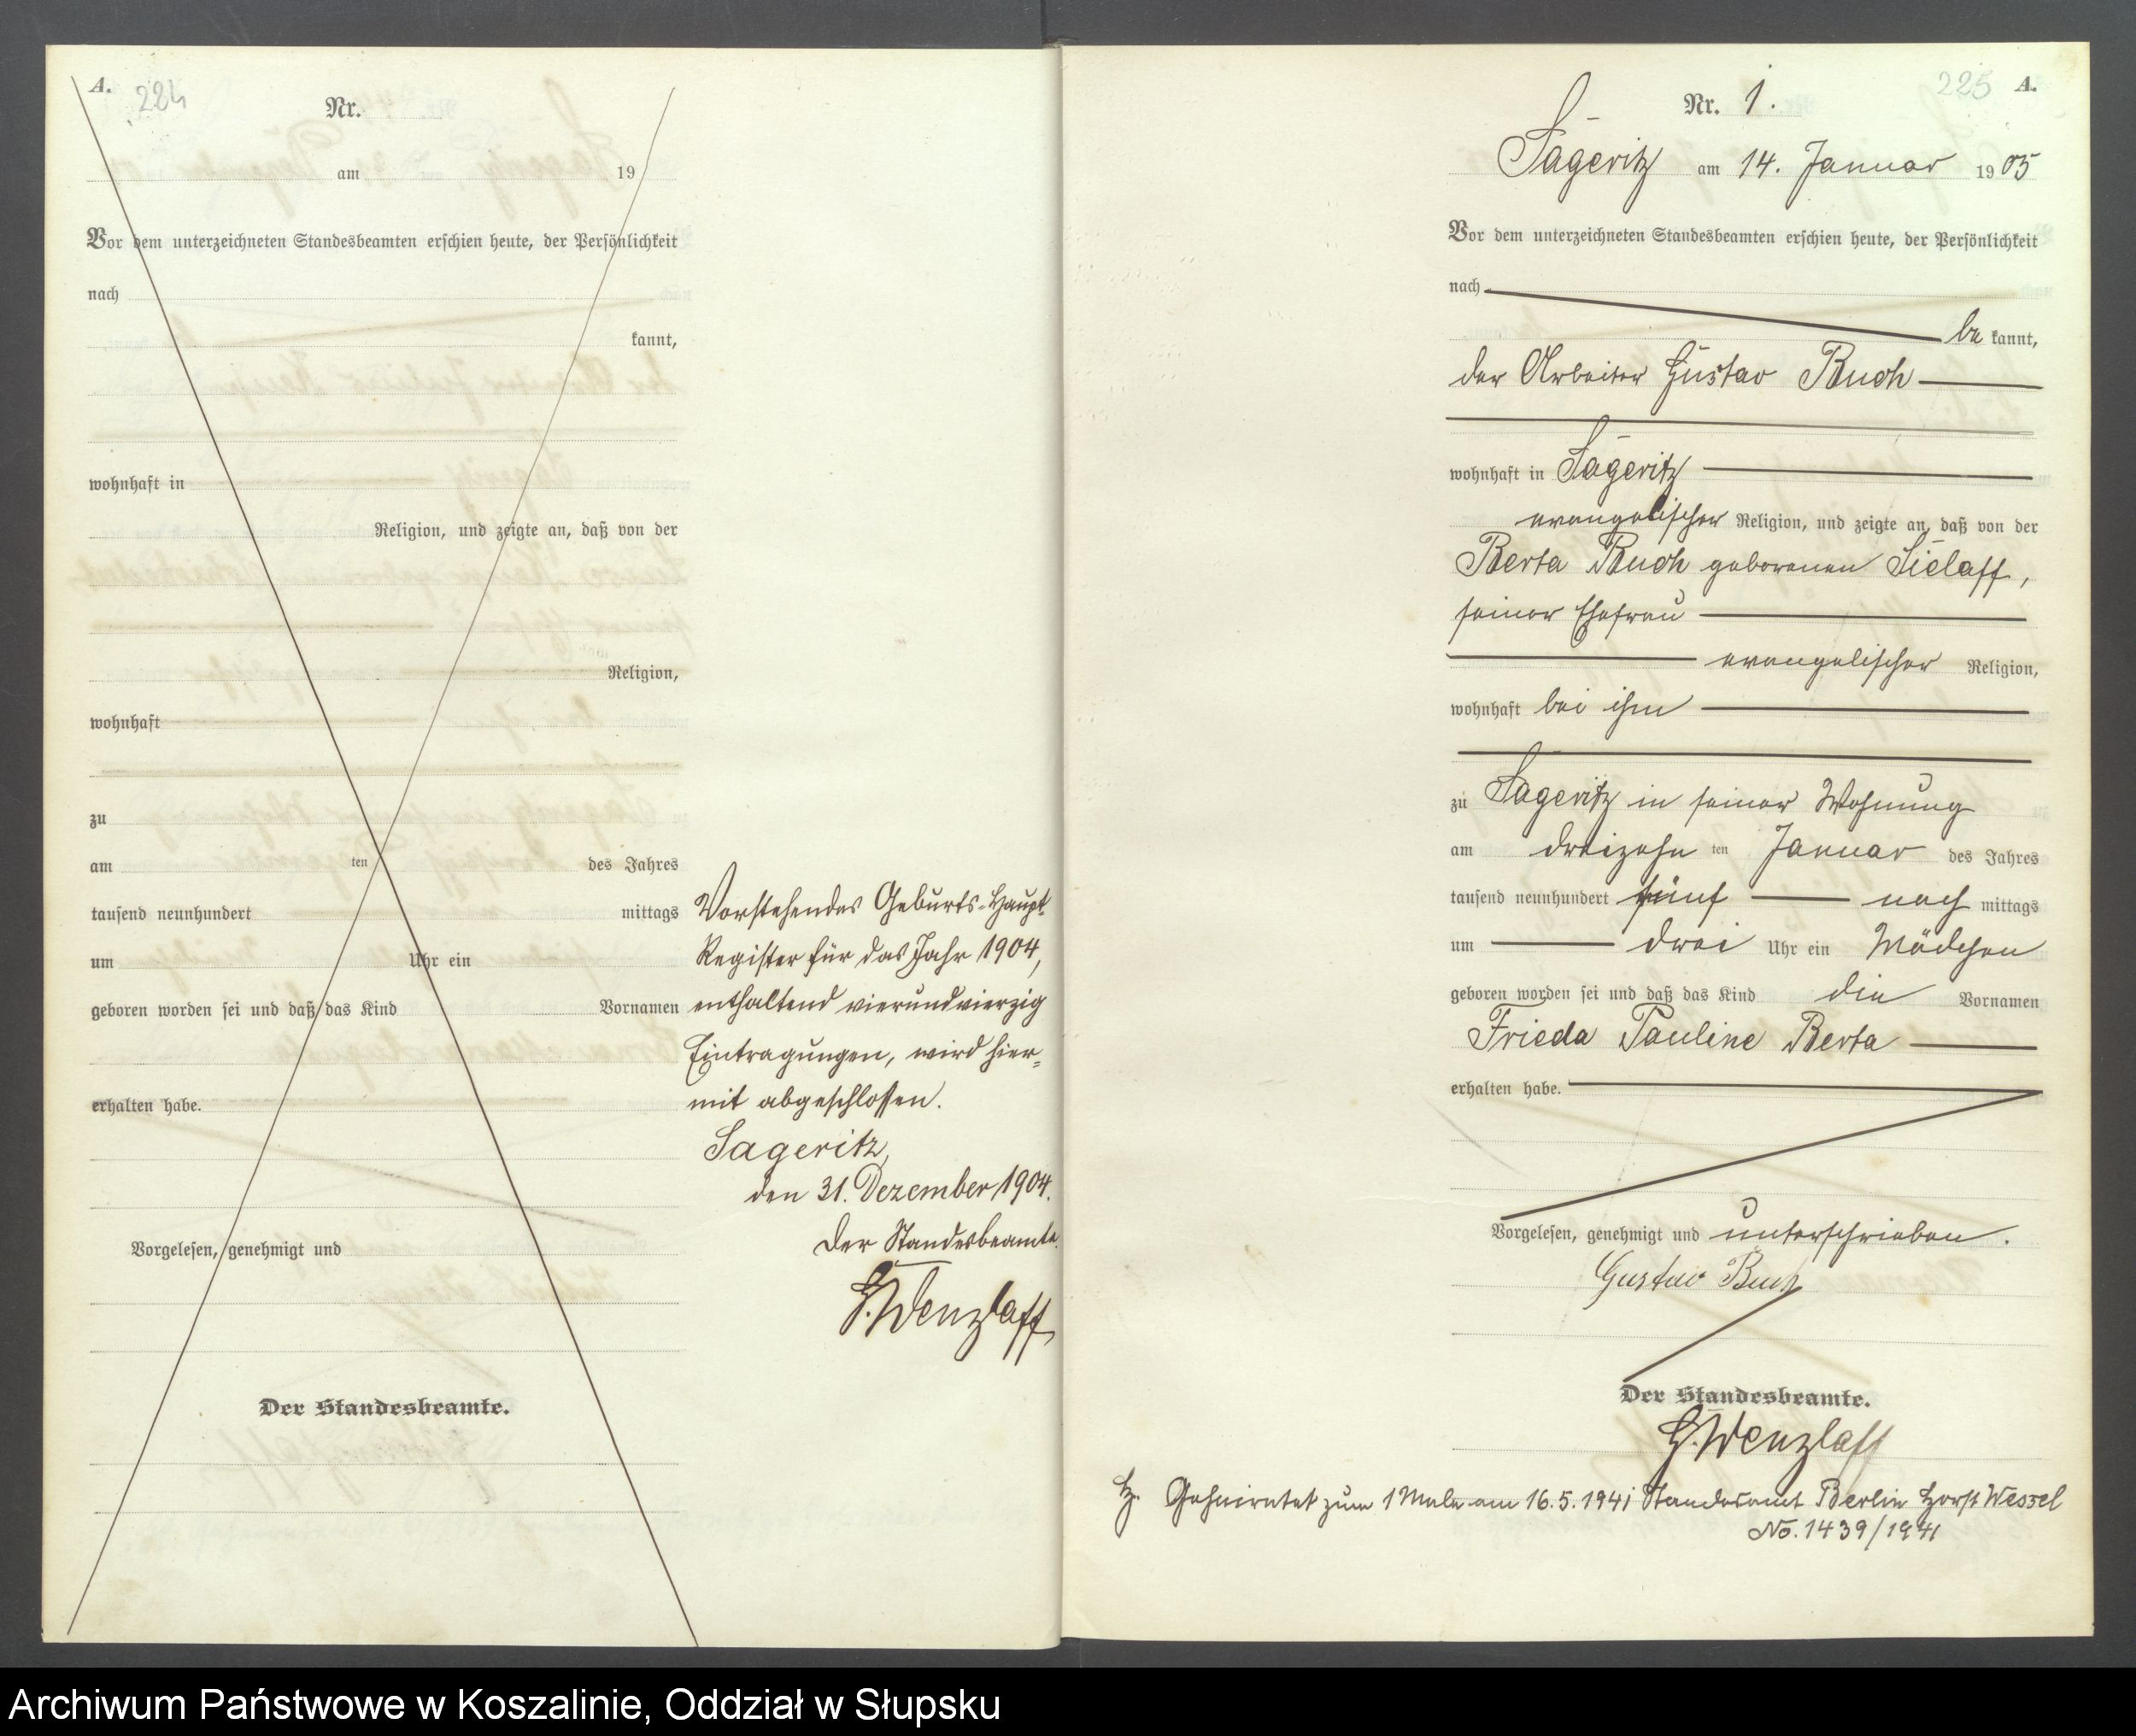 A.
224
Nr.
am 19
Vor dem unterzeichneten Standesbeamten erschien heute, der Persönlichkeit
nach
kannt,
wohnhaft in
Religion, und zeigte an, daß von der
Religion,
wohnhaft
zu
am ten des Jahres
tausend neunhundert mittags
um Uhr ein
geboren worden sei und daß das Kind Vornamen
erhalten habe.
Vorgelesen, genehmigt und
Der Standesbeamte.
Vorstehendes Geburts-Haupt-
Register für das Jahr 1904,
enthaltend vierundvierzig
Eintragungen, wird hier=
mit abgeschlossen.
Sageritz,
den 31. Dezember 1904.
Der Standesbeamte.
G. Wenzlaff
225 A.
Nr. 1.
Sageritz am 14. Januar 1905
Vor dem unterzeichneten Standesbeamten erschien heute, der Persönlichkeit
nach
be kannt,
der Arbeiter Gustav Buch
wohnhaft in Sageritz
evangelischer Religion, und zeigte an, daß von der
Berta Buch geborenen Sielaff,
seiner Ehefrau
evangelischer Religion,
wohnhaft bei ihm
zu Sageritz in seiner Wohnung
am dreizehn ten Januar des Jahres
tausend neunhundert fünf nach mittags
um drei Uhr ein Mädchen
geboren worden sei und daß das Kind die Vornamen
Frieda Pauline Berta
erhalten habe.
Vorgelesen, genehmigt und unterschrieben.
Gustav Buch
Der Standesbeamte.
G. Wenzlaff
Geheiratet zum 1 Male am 16.5.1941 Standesamt Berlin Horst Wessel
No. 1439/1941
Archiwum Państwowe w Koszalinie, Oddział w Słupsku